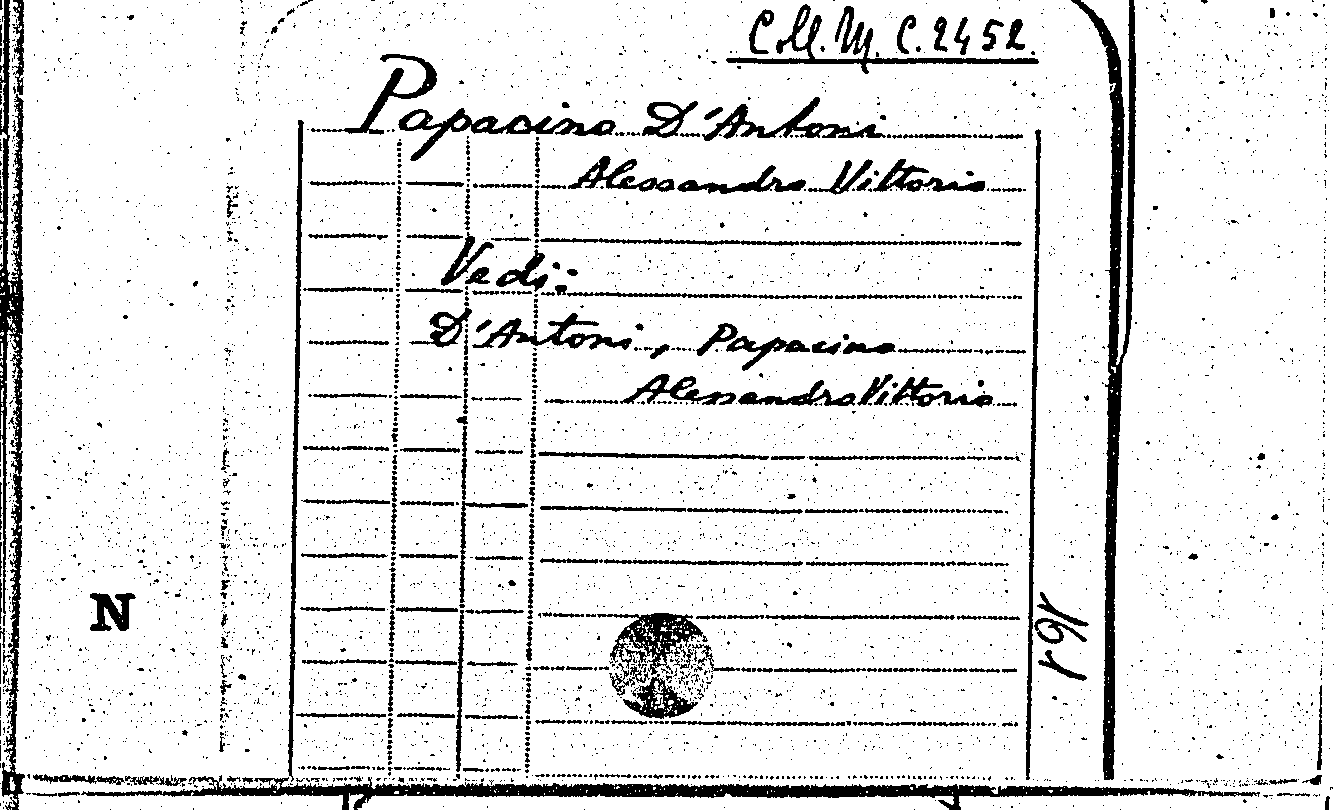 Coll. M. C. 2452.
Papacino D'Antoni
Alessandro Vittorio
Vedi:
D'Antoni, Papacino
Alessandro Vittorio
N